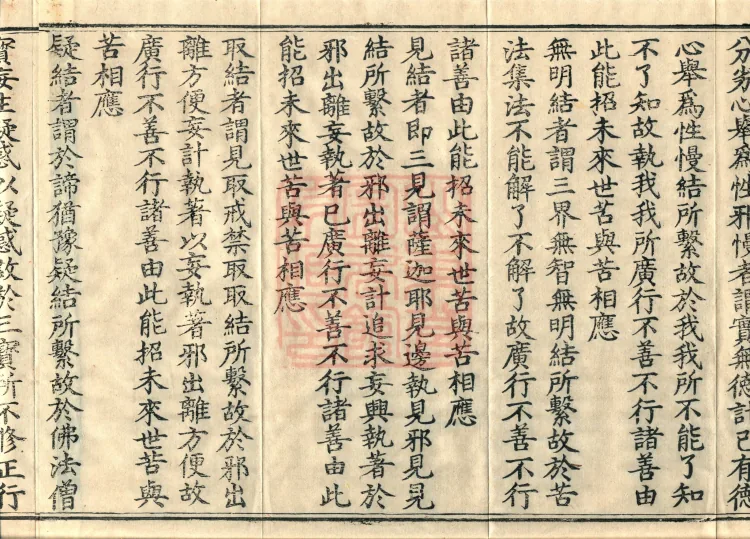 分劣心舉爲性邪慢者謂實無德計己有德
心舉爲性慢結所繫故於我我所不能了知
不了知故執我我所廣行不善不行諸善由
此能招未來世苦與苦相應
無明結者謂三界無智無明結所繫故於苦
法集法不能解了不解了故廣行不善不行
諸善由此能招未來世苦與苦相應
見結者即三見謂薩迦耶見邊執見邪見見
結所繫故於邪出離妄計追求妄興執著於
邪出離妄執著已廣行不善不行諸善由此
能招未來世苦與苦相應
取結者謂見取戒禁取取結所繫故於邪出
離方便妄計執著以妄執著邪出離方便故
廣行不善不行諸善由此能招未來世苦與
苦相應
疑結者謂於諦猶豫疑結所繫故於佛法僧
寶妄生疑惑以疑惑故於三寶所不修正行